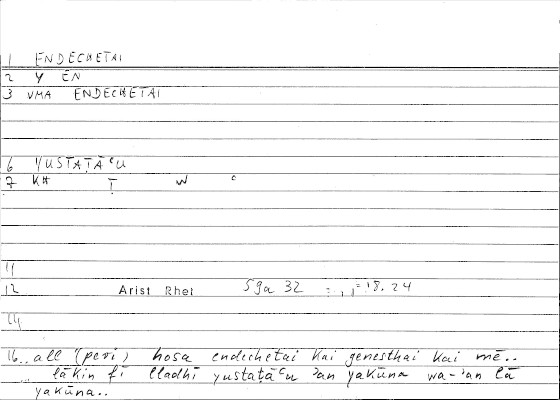 1 ENDECHETAI
2 Y EN
3 VMA ENDECHETAI
6 YUSTAṬĀʿU
7 KH Ṭ W ʿ
11
12 Arist Rhet 59a 32 18.24
14
16 .. all' (peri) hosa endechetai kai genesthai kai mē..
lākin fī lladhī yustaṭāʿu ʾan yakūna wa-ʾan lā
yakūna..